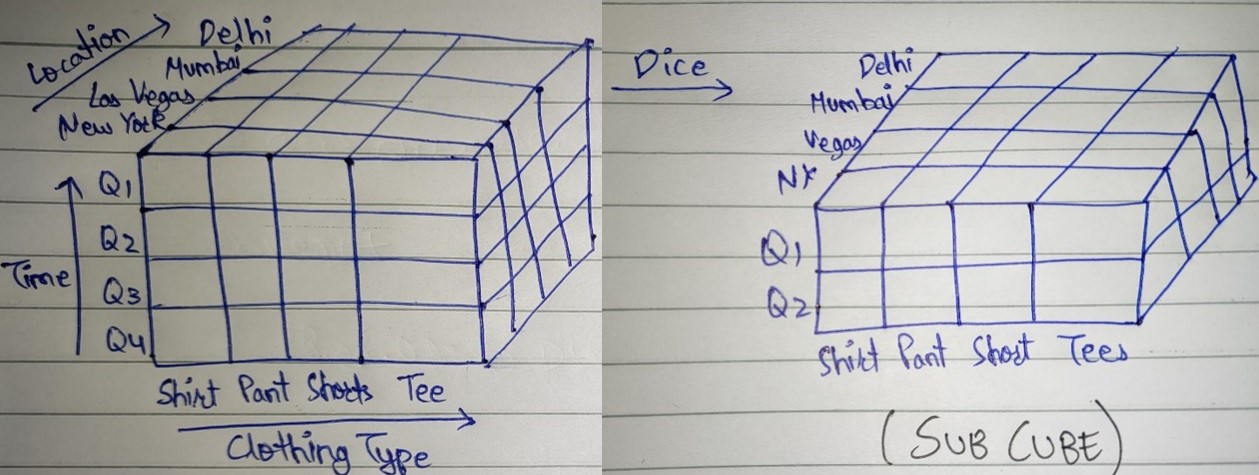 Location
Delhi
Mumbai
Las Vegas
New York
Time
Q1
Q2
Q3
Q4
Shirt Pant Shorts Tee
Clothing Type
Dice
Delhi
Mumbai
Vegas
NY
Q1
Q2
Shirt Pant Short Tees
(SUB CUBE)